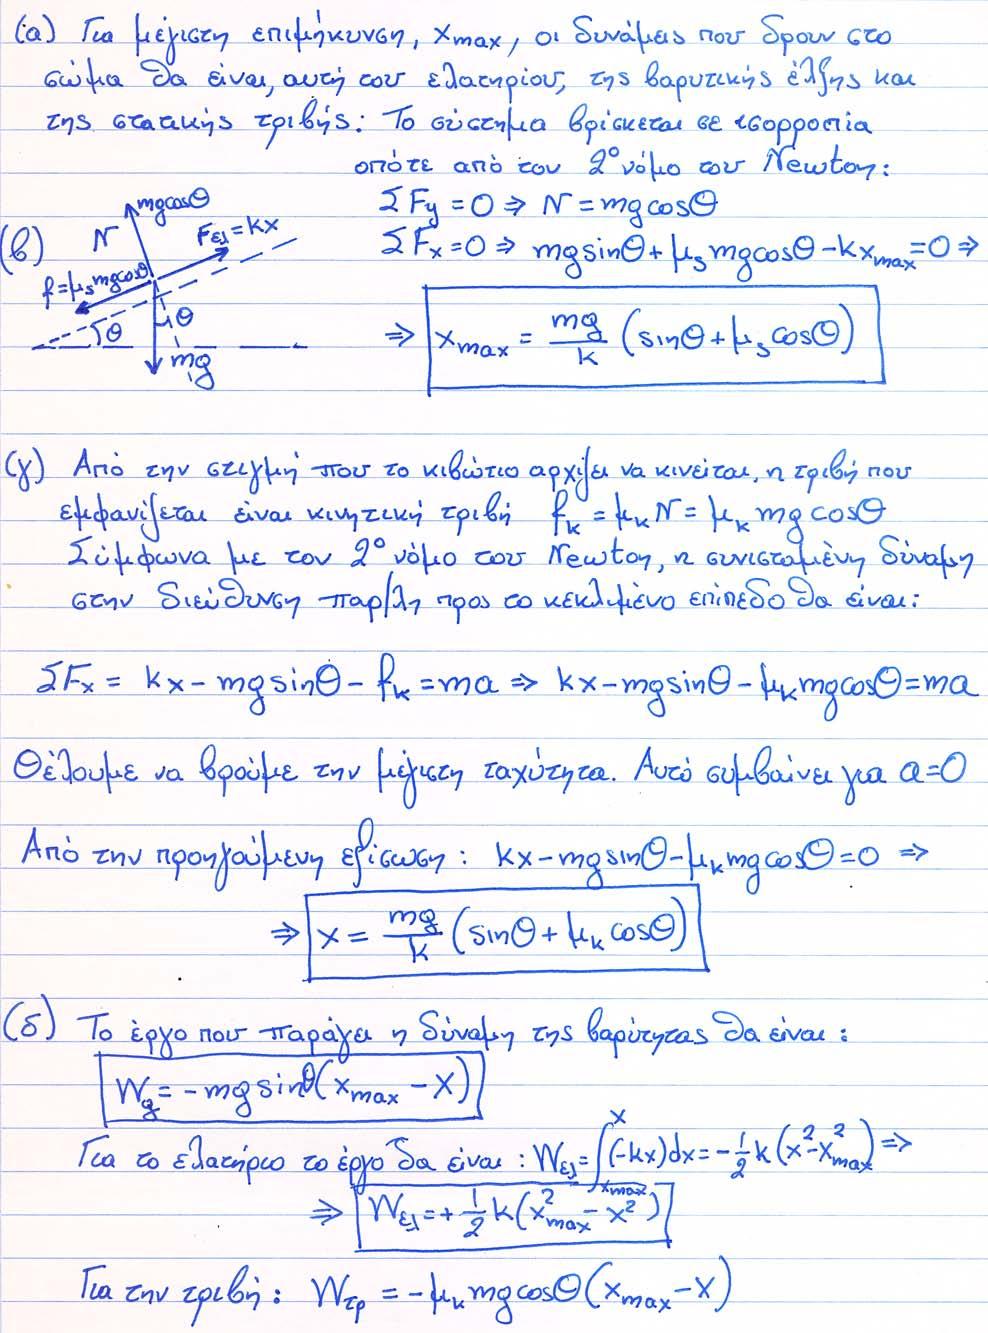 (α) Για μέγιστη επιμήκυνση, xmax, οι δυνάμεις που δρουν στο
σώμα θα είναι, αυτή του ελατηρίου, της βαρυτικής έλξης και
της στατικής τριβής: Το σύστημα βρίσκεται σε ισορροπία
οπότε από τον 2ο νόμο του Newton:
ΣFy = 0 ⇒ N = mgcosθ
(β)
N
mgcosθ
Fελ = kx
f = μs mgcosθ
θ
θ
mg
ΣFx = 0 ⇒ mgsinθ + μs mgcosθ - kxmax = 0 ⇒
⇒ xmax = mg/k (sinθ + μs cosθ)
(γ) Από την στιγμή που το κιβώτιο αρχίζει να κινείται, η τριβή που
εμφανίζεται είναι κινητική τριβή fk = μk N = μk mg cosθ
Σύμφωνα με τον 2ο νόμο του Newton, η συνισταμένη δύναμη
στην διεύθυνση παρ/λη προς το κεκλιμένο επίπεδο θα είναι:
ΣFx = kx - mgsinθ - fk = ma ⇒ kx - mgsinθ - μk mgcosθ = ma
Θέλουμε να βρούμε την μέγιστη ταχύτητα. Αυτό συμβαίνει για a=0
Από την προηγούμενη εξίσωση: kx - mgsinθ - μk mgcosθ = 0 ⇒
⇒ x = mg/k (sinθ + μk cosθ)
(δ) Το έργο που παράγει η δύναμη της βαρύτητας θα είναι:
Wg = - mg sinθ (xmax - x)
Για το ελατήριο το έργο θα είναι: Wελ = ∫xmax^x (-kx)dx = -1/2 k (x² - x²max) ⇒
⇒ Wελ = + 1/2 k (x²max - x²)
Για την τριβή: Wτρ = - μk mg cosθ (xmax - x)